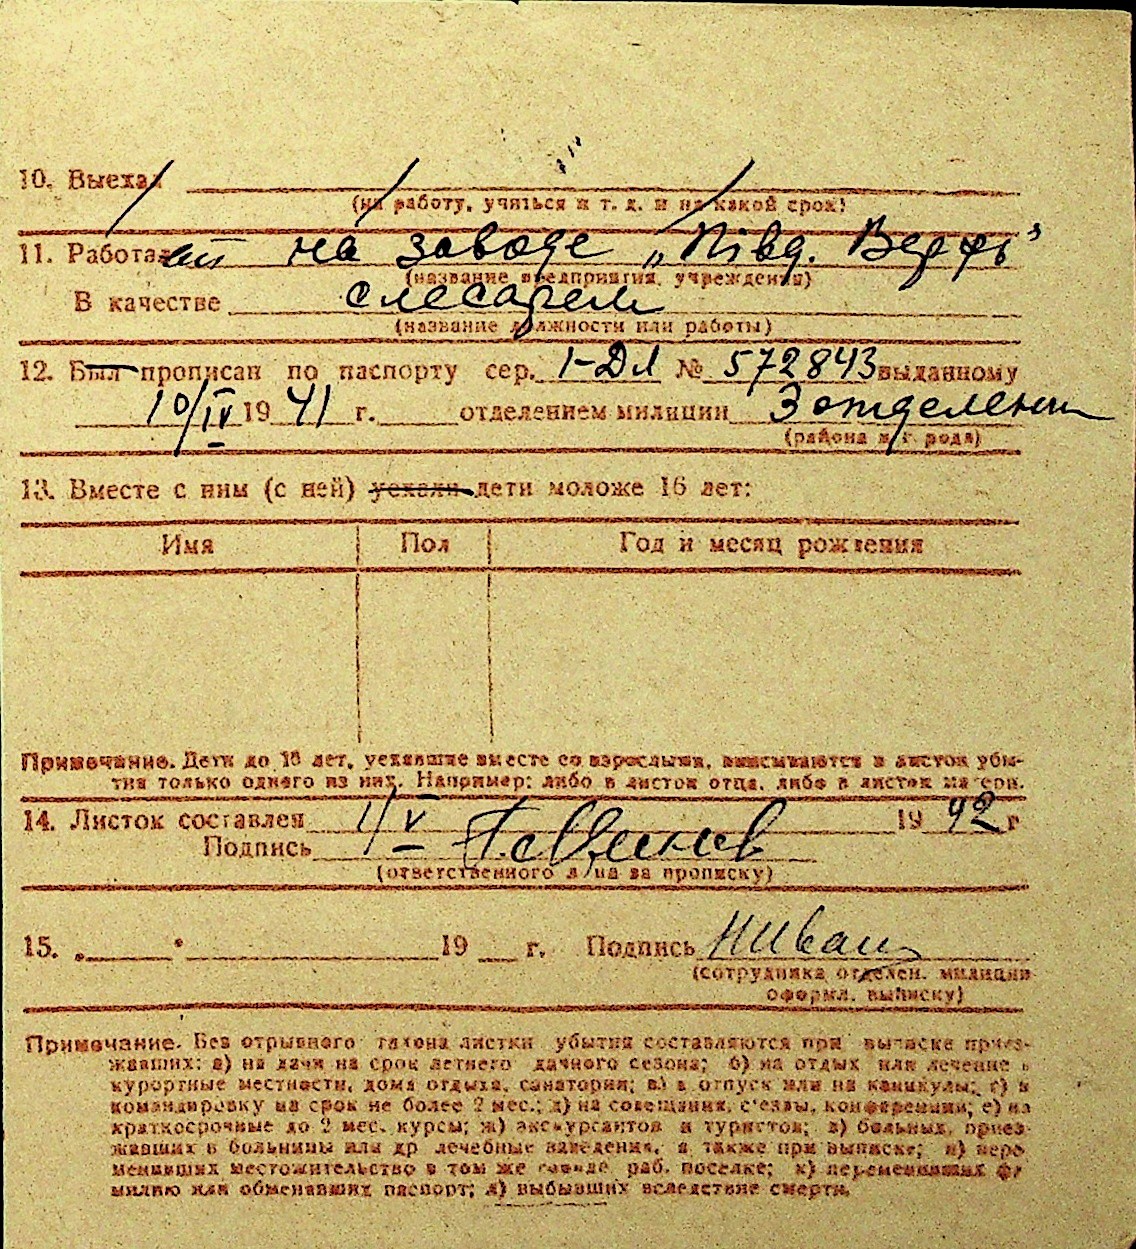 10. Выехал
(на работу, учиться и т. д. и на какой срок)
11. Работает на заводе „Півд. Верфь"
(название предприятия, учреждения)
В качестве слесарем
(название должности или работы)
12. Был прописан по паспорту сер. 1-ДЛ № 572843 выданному
10/IV 19 41 г. отделением милиции 3 отделения
(района и г рода)
13. Вместе с ним (с ней) уехали дети моложе 16 лет:
Имя Пол Год и месяц рождения
Примечание. Дети до 16 лет, уехавшие вместе со взрослыми, вписываются в листок убы-
тия только одного из них. Например: либо в листок отца, либо в листок матери.
14. Листок составлен 1/V 19 42 г
Подпись
(ответственного лица за прописку)
15. 19 г. Подпись
(сотрудника отделен. милиции
оформл. выписку)
Примечание. Без отрывного талона листки убытия составляются при выписке приез-
жавших: а) на дачи на срок летнего дачного сезона; б) на отдых или лечение в
курортные местности, дома отдыха, санатории; в) в отпуск или на каникулы; г) в
командировку на срок не более 2 мес.; д) на совещания, с'езды, конференции; е) на
краткосрочные до 2 мес. курсы; ж) экскурсантов и туристов; з) больных, приез-
жавших в больницы или др лечебные заведения, а также при выписке; и) пере
менивших местожительство в том же городе, раб. поселке; к) переменивших фа
милию или обменявших паспорт; л) выбывших вследствие смерти.